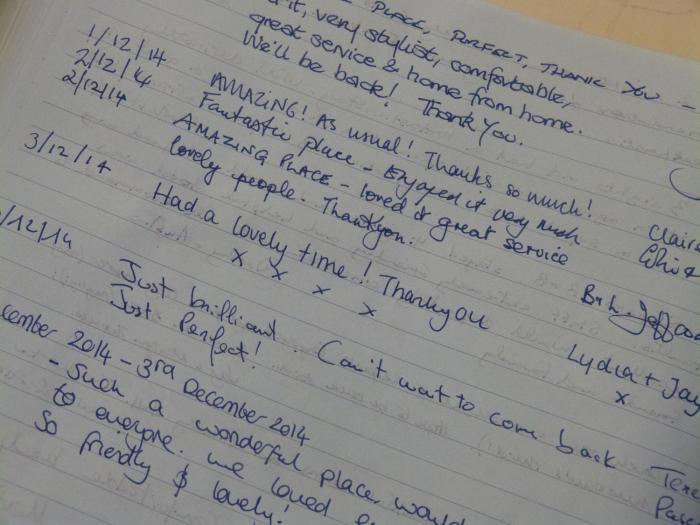 PLACE, PERFECT, THANK YOU -
it, very stylist, comfortable,
great service & home from home.
We'll be back! Thank You.
1/12/14 AMAZING! As usual! Thanks so much!
2/12/14 Fantastic place - Enjoyed it very much
2/12/14 AMAZING PLACE - loved it great service
lovely people. Thankyou.
3/12/14 Had a lovely time! Thankyou
x x x x
Lydia + Jay
x
/12/14 Just brilliant. Can't want to come back
Just Perfect!
cember 2014 - 3rd December 2014
- Such a wonderful place, would
to everyone. we loved
so friendly & lovely!